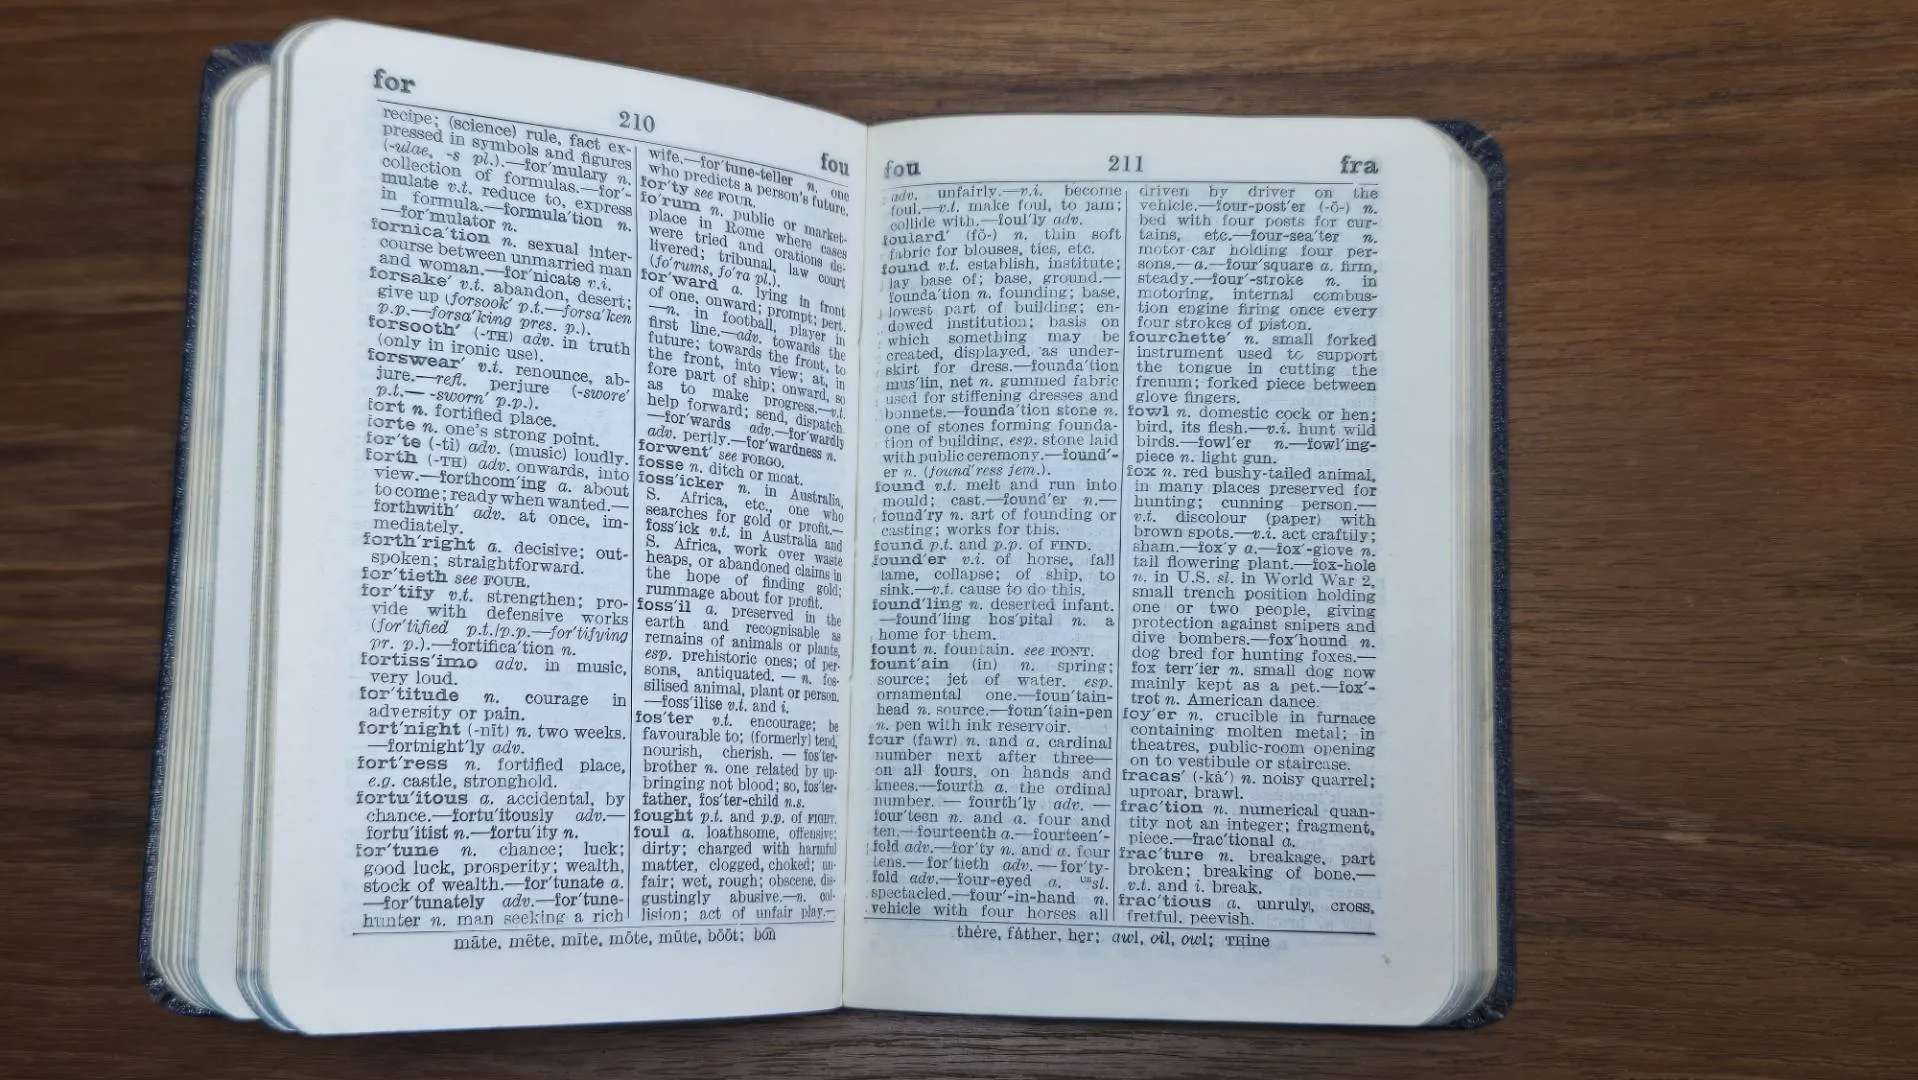 for
210
fou
recipe; (science) rule, fact ex-
pressed in symbols and figures
(-ulae, -s pl.).—for′mulary n.
collection of formulas.—for′-
mulate v.t. reduce to, express
in formula.—formula′tion n.
—for′mulator n.
fornica′tion n. sexual inter-
course between unmarried man
and woman.—for′nicate v.i.
forsake′ v.t. abandon, desert;
give up (forsook′ p.t.—forsa′ken
p.p.—forsa′king pres. p.).
forsooth′ (-TH) adv. in truth
(only in ironic use).
forswear′ v.t. renounce, ab-
jure.—refl. perjure (-swore′
p.t.— -sworn′ p.p.).
fort n. fortified place.
forte n. one's strong point.
for′te (-ti) adv. (music) loudly.
forth (-TH) adv. onwards, into
view.—forthcom′ing a. about
to come; ready when wanted.—
forthwith′ adv. at once, im-
mediately.
forth′right a. decisive; out-
spoken; straightforward.
for′tieth see FOUR.
for′tify v.t. strengthen; pro-
vide with defensive works
(for′tified p.t./p.p.—for′tifying
pr. p.).—fortifica′tion n.
fortiss′imo adv. in music,
very loud.
for′titude n. courage in
adversity or pain.
fort′night (-nīt) n. two weeks.
—fortnight′ly adv.
fort′ress n. fortified place,
e.g. castle, stronghold.
fortu′itous a. accidental, by
chance.—fortu′itously adv.—
fortu′itist n.—fortu′ity n.
for′tune n. chance; luck;
good luck, prosperity; wealth,
stock of wealth.—for′tunate a.
—for′tunately adv.—for′tune-
hunter n. man seeking a rich
wife.—for′tune-teller n. one
who predicts a person's future.
for′ty see FOUR.
fo′rum n. public or market-
place in Rome where cases
were tried and orations de-
livered; tribunal, law court
(fo′rums, fo′ra pl.).
for′ward a. lying in front
of one, onward; prompt; pert.
—n. in football, player in
first line.—adv. towards the
future; towards the front, to
the front, into view; at, in
fore part of ship; onward, so
as to make progress.—v.t.
help forward; send, dispatch.
—for′wards adv.—for′wardly
adv. pertly.—for′wardness n.
forwent′ see FORGO.
fosse n. ditch or moat.
foss′icker n. in Australia,
S. Africa, etc., one who
searches for gold or profit.—
foss′ick v.t. in Australia and
S. Africa, work over waste
heaps, or abandoned claims in
the hope of finding gold;
rummage about for profit.
foss′il a. preserved in the
earth and recognisable as
remains of animals or plants,
esp. prehistoric ones; of per-
sons, antiquated. — n. fos-
silised animal, plant or person.
—foss′ilise v.t. and i.
fos′ter v.t. encourage; be
favourable to; (formerly) tend,
nourish, cherish. — fos′ter-
brother n. one related by up-
bringing not blood; so, fos′ter-
father, fos′ter-child n.s.
fought p.t. and p.p. of FIGHT.
foul a. loathsome, offensive;
dirty; charged with harmful
matter, clogged, choked; un-
fair; wet, rough; obscene, dis-
gustingly abusive.—n. col-
lision; act of unfair play.—
māte, mēte, mīte, mōte, mūte, bōōt; bon
fou
211
fra
adv. unfairly.—v.i. become
foul.—v.t. make foul, to jam;
collide with.—foul′ly adv.
foulard′ (fō-) n. thin soft
fabric for blouses, ties, etc.
found v.t. establish, institute;
lay base of; base, ground.—
founda′tion n. founding; base,
lowest part of building; en-
dowed institution; basis on
which something may be
created, displayed, as under-
skirt for dress.—founda′tion
mus′lin, net n. gummed fabric
used for stiffening dresses and
bonnets.—founda′tion stone n.
one of stones forming founda-
tion of building, esp. stone laid
with public ceremony.—found′-
er n. (found′ress fem.).
found v.t. melt and run into
mould; cast.—found′er n.—
found′ry n. art of founding or
casting; works for this.
found p.t. and p.p. of FIND.
found′er v.i. of horse, fall
lame, collapse; of ship, to
sink.—v.t. cause to do this.
found′ling n. deserted infant.
—found′ling hos′pital n. a
home for them.
fount n. fountain. see FONT.
fount′ain (in) n. spring;
source; jet of water, esp.
ornamental one.—foun′tain-
head n. source.—foun′tain-pen
n. pen with ink reservoir.
four (fawr) n. and a. cardinal
number next after three—
on all fours, on hands and
knees.—fourth a. the ordinal
number. — fourth′ly adv. —
four′teen n. and a. four and
ten.—fourteenth a.—fourteen′-
fold adv.—for′ty n. and a. four
tens.—for′tieth adv. — for′ty-
fold adv.—four-eyed a. US sl.
spectacled.—four′-in-hand n.
vehicle with four horses all
driven by driver on the
vehicle.—four-post′er (-ō-) n.
bed with four posts for cur-
tains, etc.—four-sea′ter n.
motor-car holding four per-
sons.—a.—four′square a. firm,
steady.—four′-stroke n. in
motoring, internal combus-
tion engine firing once every
four strokes of piston.
fourchette′ n. small forked
instrument used to support
the tongue in cutting the
frenum; forked piece between
glove fingers.
fowl n. domestic cock or hen;
bird, its flesh.—v.i. hunt wild
birds.—fowl′er n.—fowl′ing-
piece n. light gun.
fox n. red bushy-tailed animal,
in many places preserved for
hunting; cunning person.—
v.t. discolour (paper) with
brown spots.—v.i. act craftily;
sham.—fox′y a.—fox′-glove n.
tall flowering plant.—fox-hole
n. in U.S. sl. in World War 2,
small trench position holding
one or two people, giving
protection against snipers and
dive bombers.—fox′hound n.
dog bred for hunting foxes.—
fox terr′ier n. small dog now
mainly kept as a pet.—fox′-
trot n. American dance.
foy′er n. crucible in furnace
containing molten metal; in
theatres, public-room opening
on to vestibule or staircase.
fracas′ (-kȧ′) n. noisy quarrel;
uproar, brawl.
frac′tion n. numerical quan-
tity not an integer; fragment,
piece.—frac′tional a.
frac′ture n. breakage, part
broken; breaking of bone.—
v.t. and i. break.
frac′tious a. unruly, cross,
fretful, peevish.
thére, fáther, her; awl, oil, owl; THine